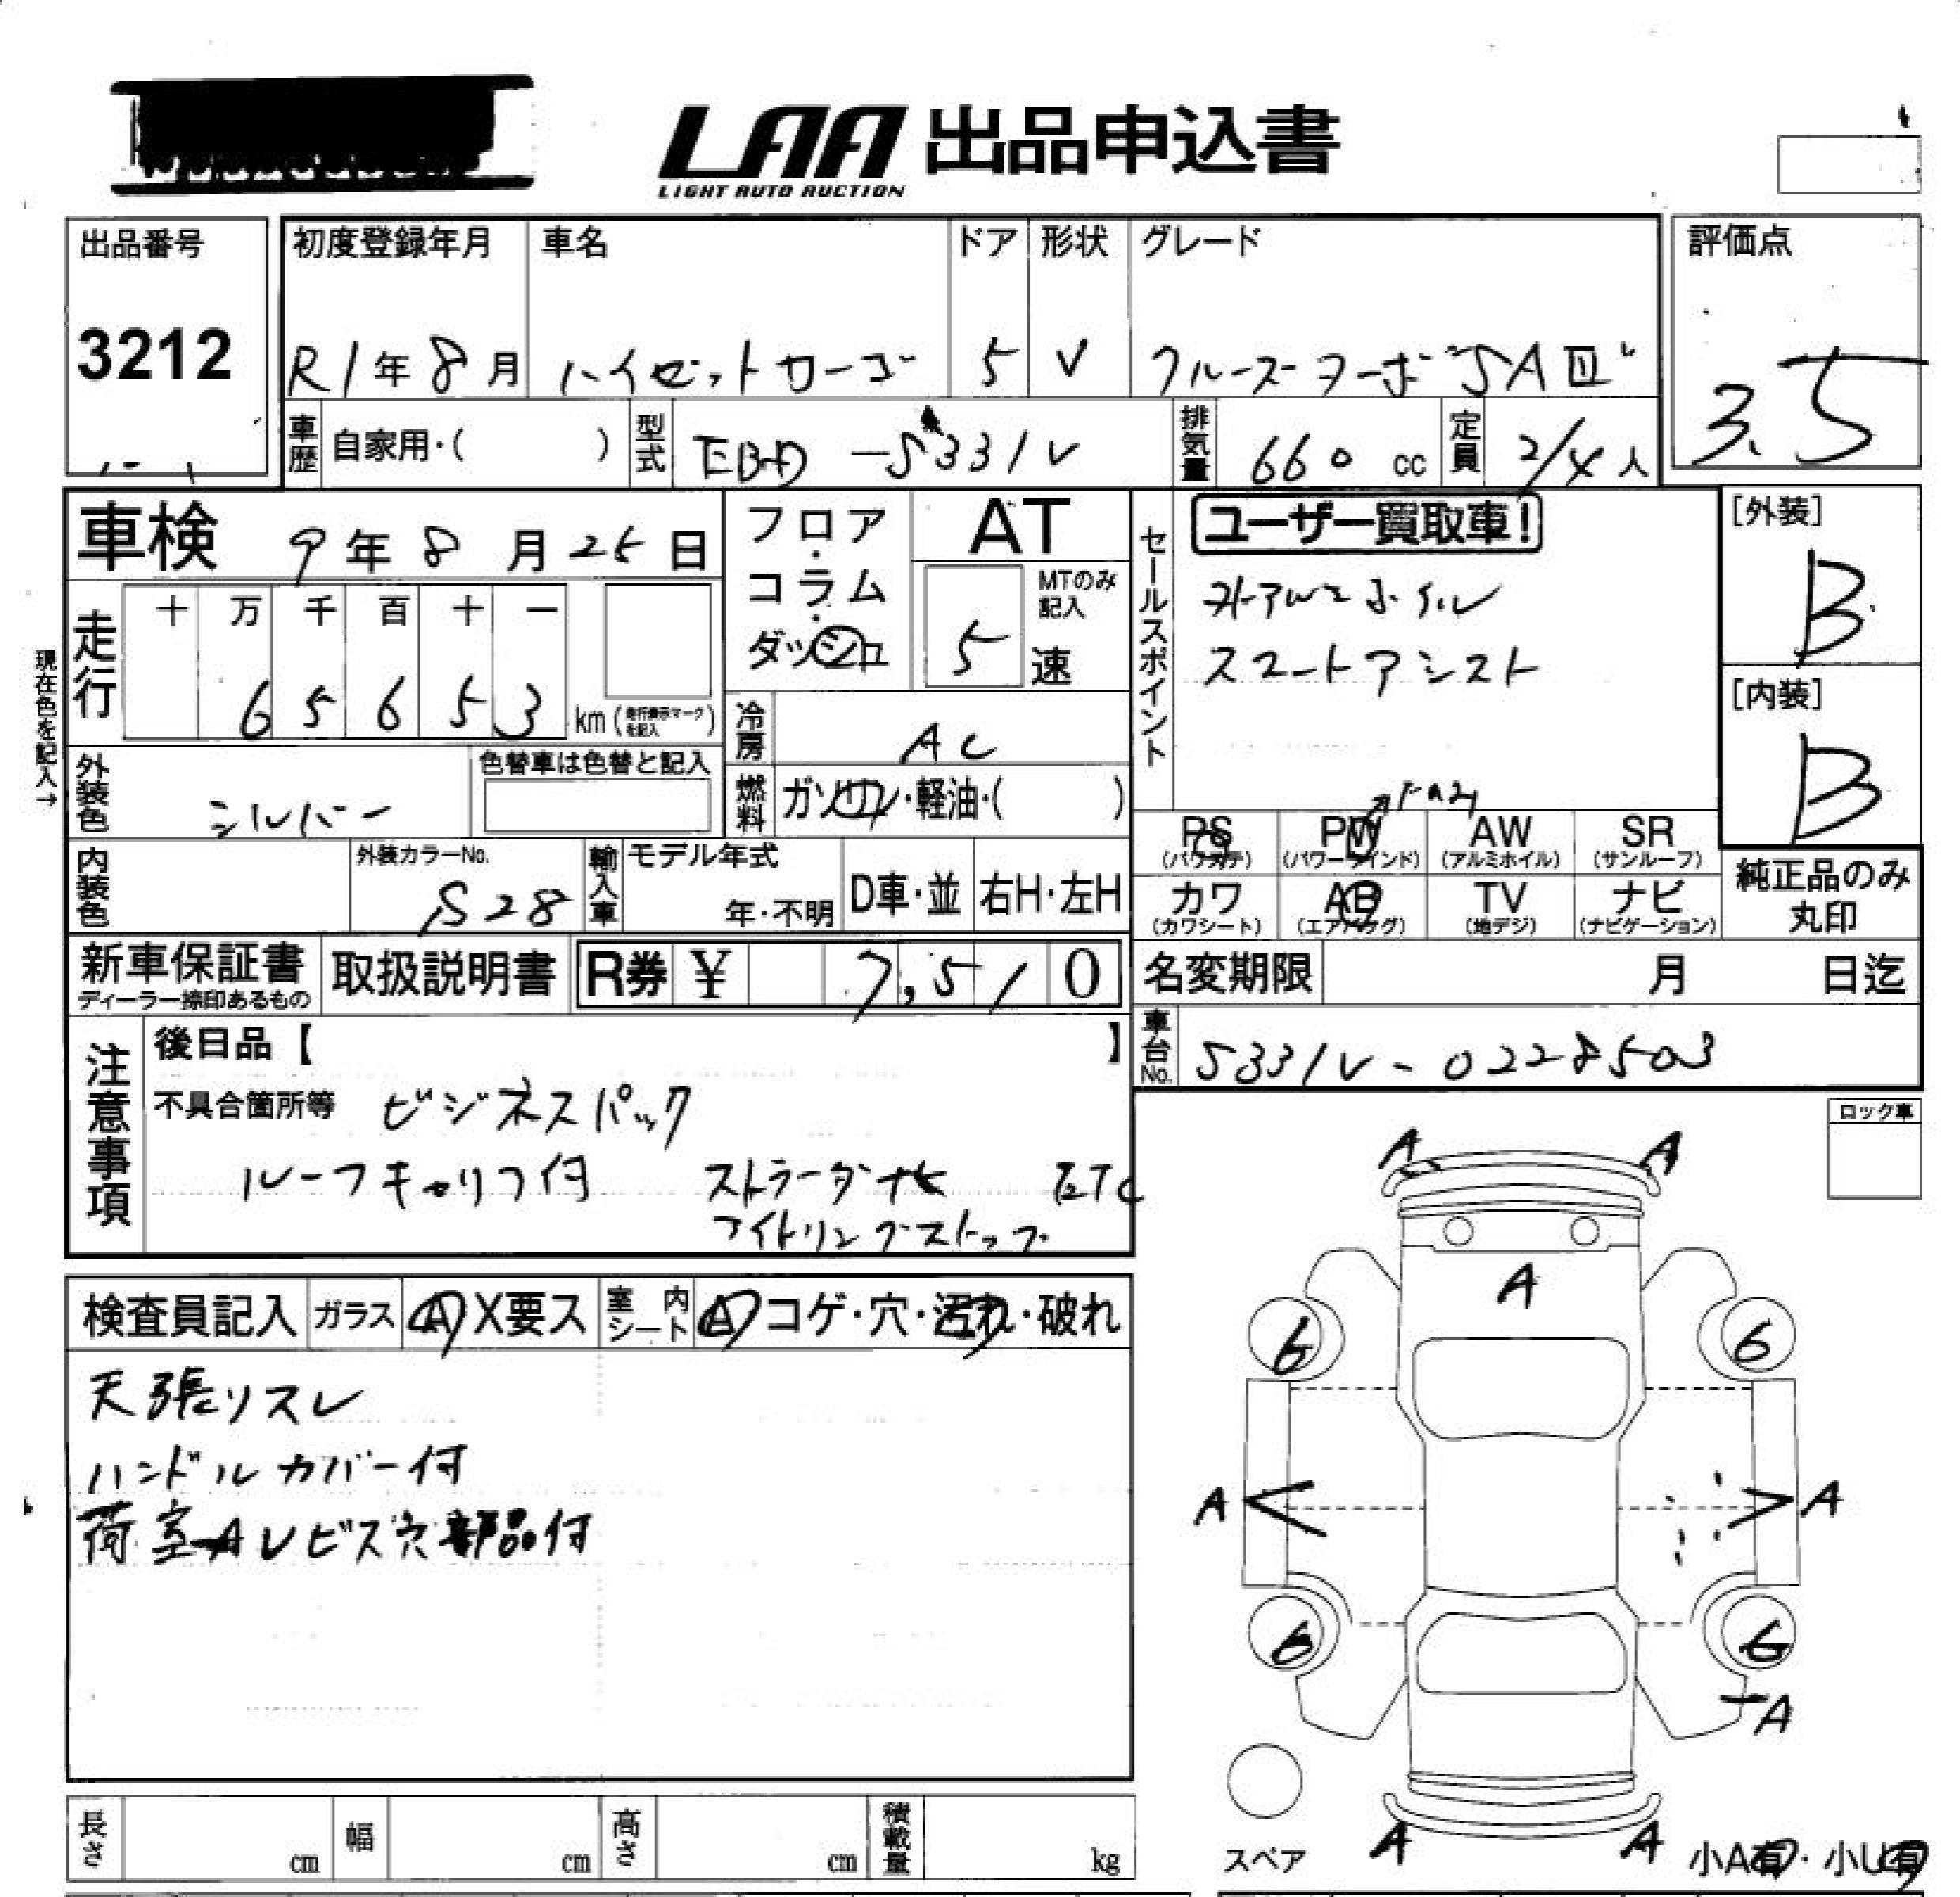 LAA 出品申込書
LIGHT AUTO AUCTION
出品番号
3212
初度登録年月
R1年8月
車名
ハイゼットカーゴ
ドア
5
形状
V
グレード
クルーズターボ"SAⅢ"
評価点
3.5
車歴 自家用・( )
型式 EBD-S331V
排気量 660 cc
定員 2/4人
車検 9年8月25日
フロア・コラム・ダッシュ
AT
MTのみ記入
5速
セールスポイント
ユーザー買取車!
社外アルミホイル
スマートアシスト
[外装]
B
[内装]
B
現在色を記入→
走行
十 万 千 百 十 一
6 5 6 5 3 km (走行表示マークを記入)
冷房 AC
外装色 シルバー
色替車は色替と記入
燃料 ガソリン・軽油・( )
PS (パワステ)
PW (パワーウインド)
AW (アルミホイル)
SR (サンルーフ)
内装色
外装カラーNo.
S28
輸入車
モデル年式
年・不明
D車・並
右H・左H
カワ (カワシート)
AB (エアバッグ)
TV (地デジ)
ナビ (ナビゲーション)
純正品のみ丸印
新車保証書
ディーラー捺印あるもの
取扱説明書
R券 ¥ 7,510
名変期限 月 日迄
車台No. S331V-0228503
注意事項
後日品【 】
不具合箇所等 ビジネスパック
ルーフキャリア付 ストラーダナビ ETC
アイドリングストップ
ロック車
検査員記入
ガラス A X要ス
室内シート A コゲ・穴・汚れ・破れ
天張リスレ
ハンドルカバー付
荷室AレビスPM穴部品付
A A
A
6 6
A A
6 6
A
A A
スペア
小A有・小U有
長さ cm
幅 cm
高さ cm
積載量 kg